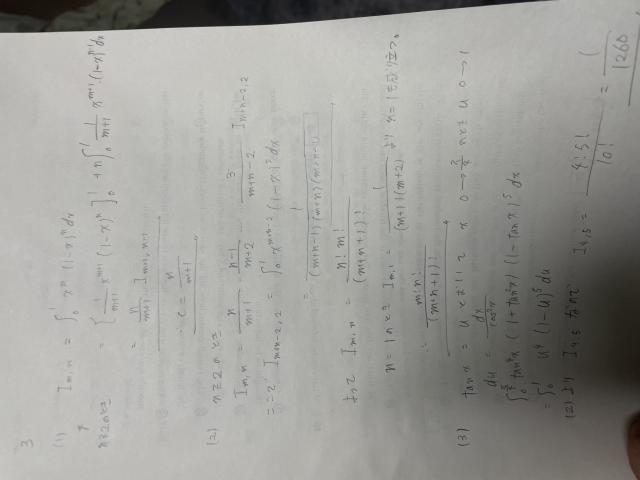 3
(1) I_{m,n} = ∫_0^1 x^m (1-x)^n dx
n≧2のとき = [1/(m+1) x^{m+1} (1-x)^n]_0^1 + n∫_0^1 1/(m+1) x^{m+1} (1-x)^{n-1} dx
= n/(m+1) I_{m+1,n-1}
c = n/(m+1)
(2) n≧2のとき
I_{m,n} = n/(m+1) · (n-1)/(m+2) ··· 3/(m+n-2) I_{m+n-2,2}
ここで I_{m+n-2,2} = ∫_0^1 x^{m+n-2} (1-x)^2 dx
よって I_{m,n} = n! m!/(m+n+1)!
n=1のとき I_{m,1} = 1/(m+1)(m+2) より n=1も成り立つ。
∴ m!n!/(m+n+1)!
(3) tan x = u とおいて x 0→π/4 のとき u 0→1
du = dx/cos²x
∫_0^{π/4} tan⁴x (1+tan²x)(1-tan x)^5 dx
= ∫_0^1 u⁴ (1-u)^5 du
(2)より I_{4,5} I_{4,5} = 4!5!/10! = 1/1260